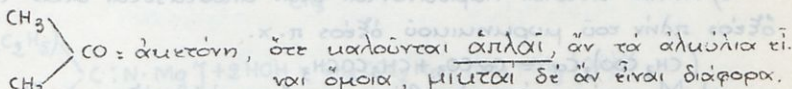 CH₃
CO = ἀκετόνη, ὅτε καλοῦνται ἁπλαῖ, ἄν τα ἀλκύλια εἶ-
CH₃ ναι ὅμοια, μικταὶ δὲ ἄν εἶναι διάφορα.